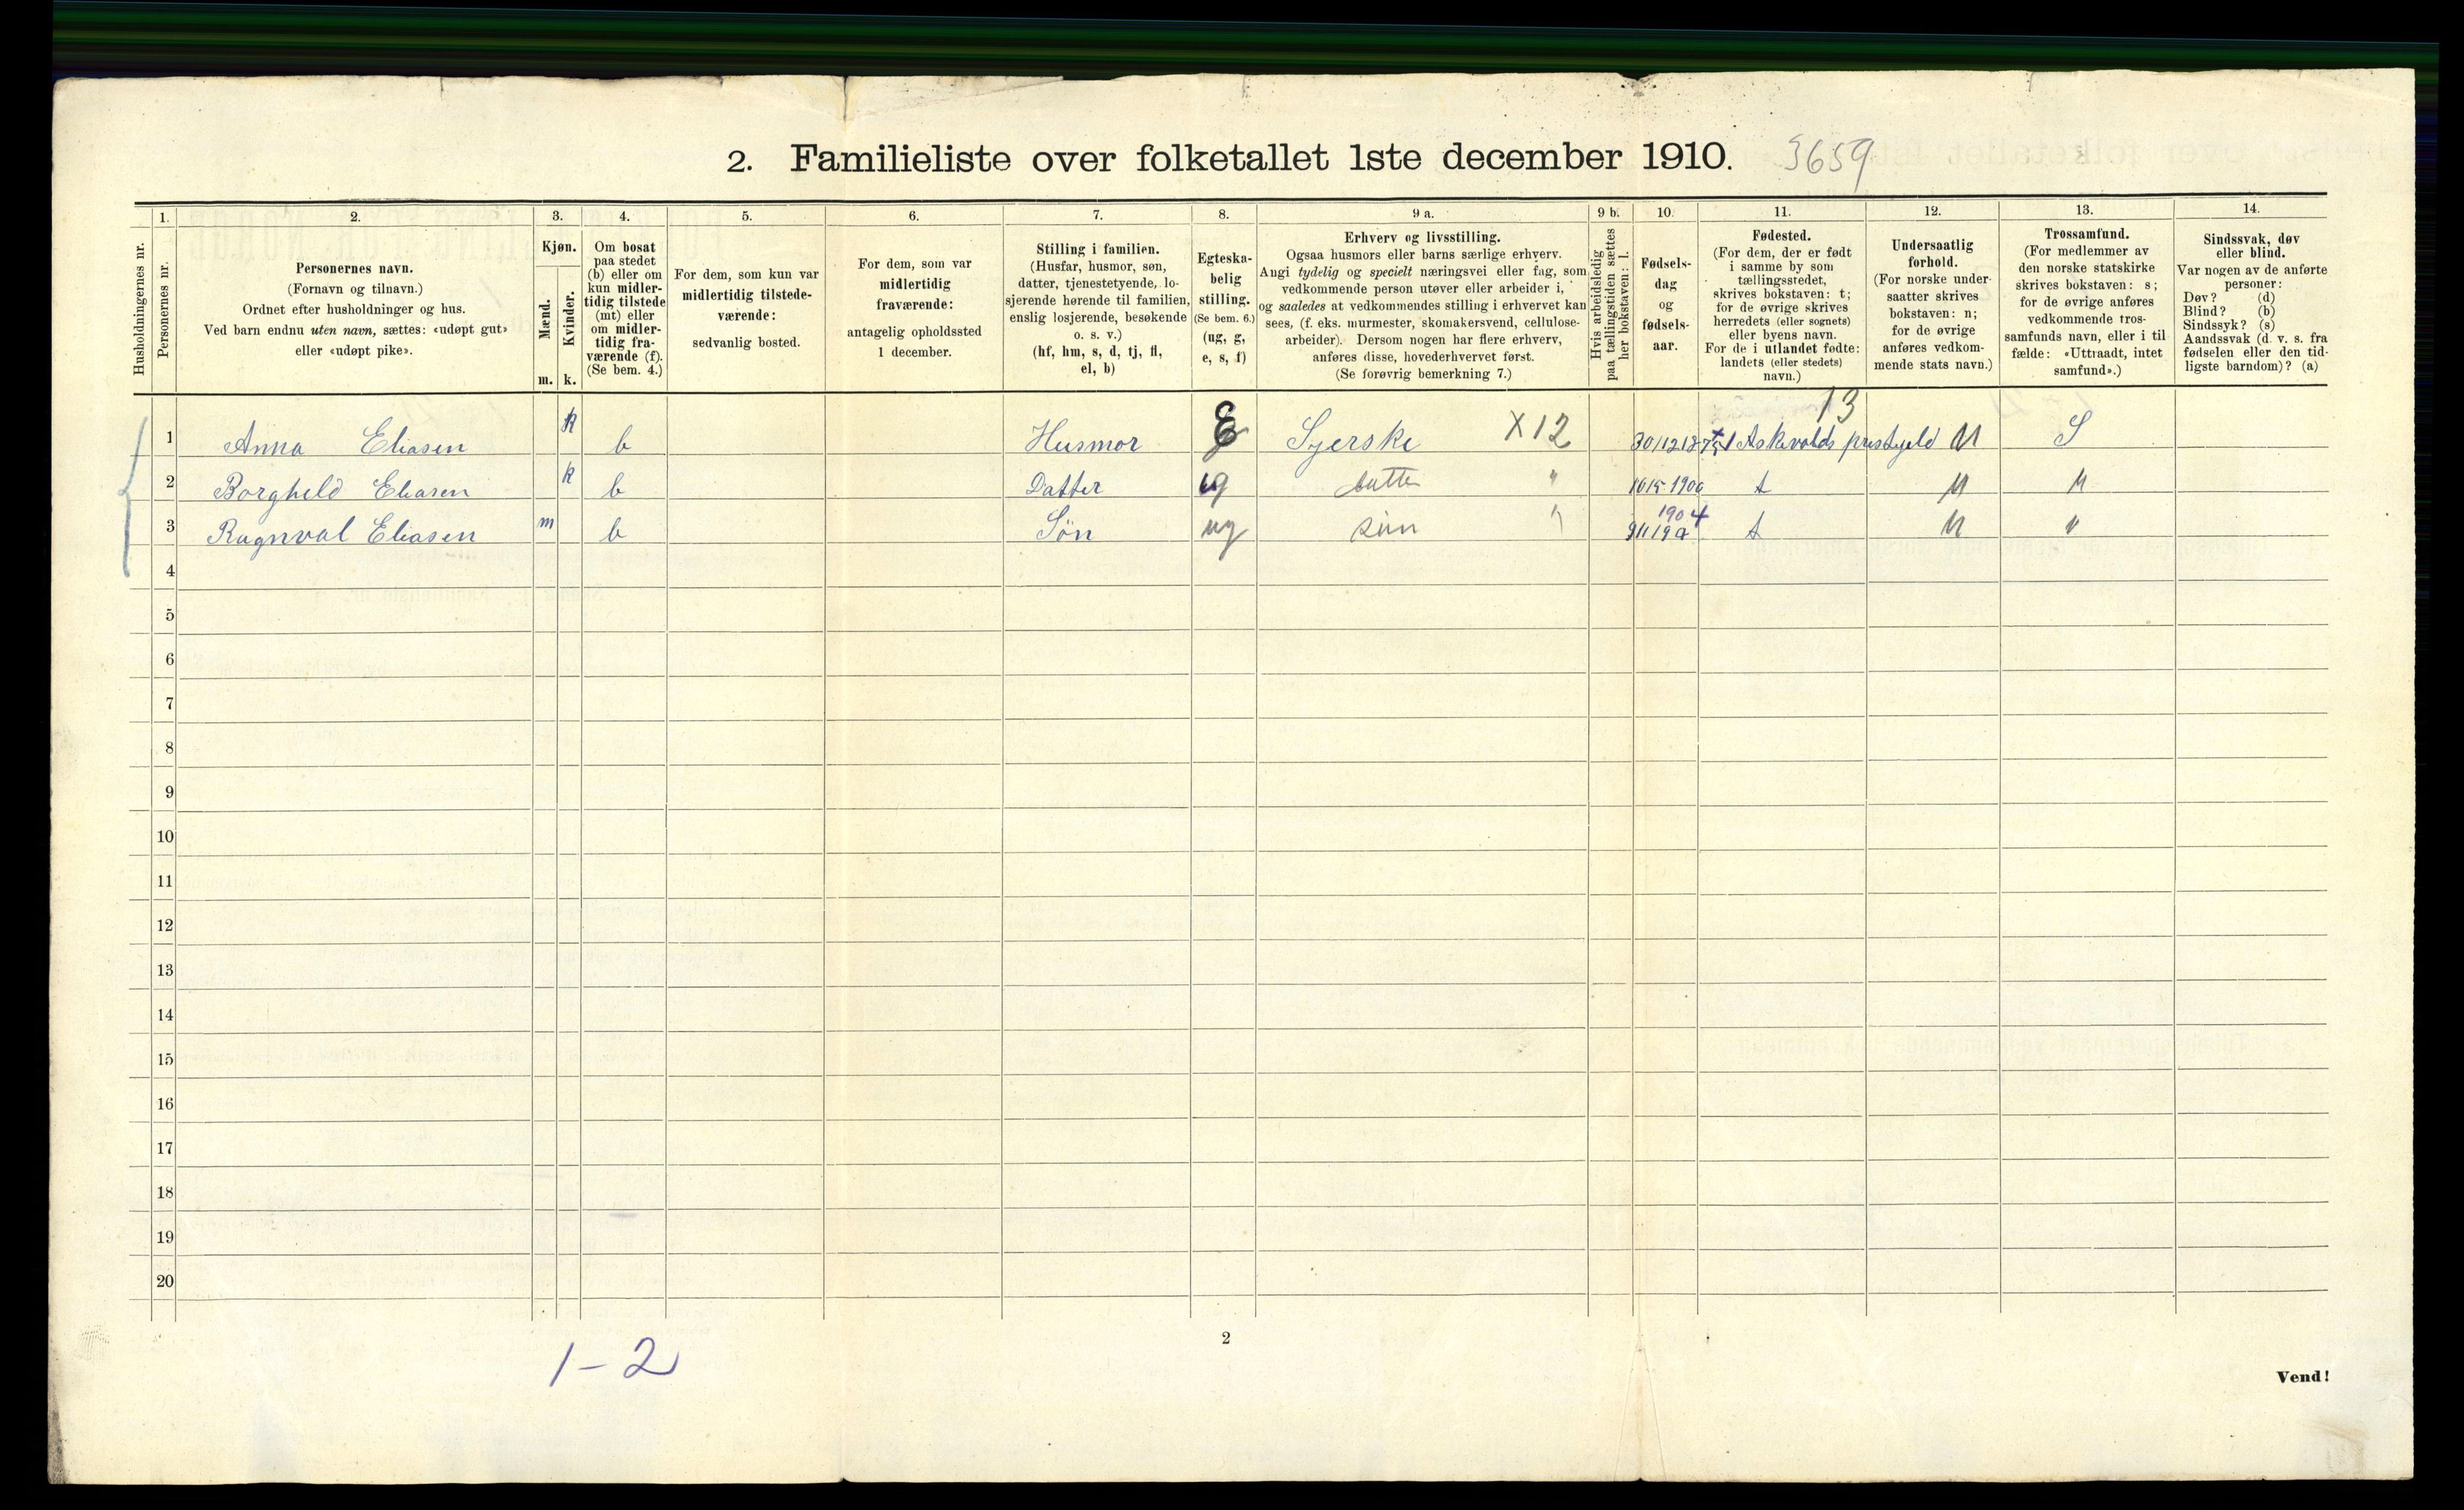 2. Familieliste over folketallet 1ste december 1910. 3659
1. 2. 3. 4. 5. 6. 7. 8. 9 a. 9 b. 10. 11. 12. 13. 14.
Husholdningernes nr.
Personernes nr.
Personernes navn.
(Fornavn og tilnavn.)
Ordnet efter husholdninger og hus.
Ved barn endnu uten navn, sættes: «udøpt gut»
eller «udøpt pike».
Kjøn.
Mænd.
Kvinder.
m. k.
Om bosat
paa stedet
(b) eller om
kun midler-
tidig tilstede
(mt) eller
om midler-
tidig fra-
værende (f).
(Se bem. 4.)
For dem, som kun var
midlertidig tilstede-
værende:
sedvanlig bosted.
For dem, som var
midlertidig
fraværende:
antagelig opholdssted
1 december.
Stilling i familien.
(Husfar, husmor, søn,
datter, tjenestetyende, lo-
sjerende hørende til familien,
enslig losjerende, besøkende
o. s. v.)
(hf, hm, s, d, tj, fl,
el, b)
Egteska-
belig
stilling.
(Se bem. 6.)
(ug, g,
e, s, f)
Erhverv og livsstilling.
Ogsaa husmors eller barns særlige erhverv.
Angi tydelig og specielt næringsvei eller fag, som
vedkommende person utøver eller arbeider i,
og saaledes at vedkommendes stilling i erhvervet kan
sees, (f. eks. murmester, skomakersvend, cellulose-
arbeider). Dersom nogen har flere erhverv,
anføres disse, hovederhvervet først.
(Se forøvrig bemerkning 7.)
Hvis arbeidsledig
paa tællingstiden sættes
her bokstaven: l.
Fødsels-
dag
og
fødsels-
aar.
Fødested.
(For dem, der er født
i samme by som
tællingsstedet,
skrives bokstaven: t;
for de øvrige skrives
herredets (eller sognets)
eller byens navn.
For de i utlandet fødte:
landets (eller stedets)
navn.)
Undersaatlig
forhold.
(For norske under-
saatter skrives
bokstaven: n;
for de øvrige
anføres vedkom-
mende stats navn.)
Trossamfund.
(For medlemmer av
den norske statskirke
skrives bokstaven: s;
for de øvrige anføres
vedkommende tros-
samfunds navn, eller i til
fælde: «Uttraadt, intet
samfund».)
Sindssvak, døv
eller blind.
Var nogen av de anførte
personer:
Døv? (d)
Blind? (b)
Sindssyk? (s)
Aandssvak (d. v. s. fra
fødselen eller den tid-
ligste barndom)? (a)
13
1 Anna Eliasen k b Husmor Syerske X12 Askevolds prestgeld n S
2 Borghild Eliasen k b Datter ug datter " t n "
1904
3 Ragnval Eliasen m b Søn ug søn " t n "
4
5
6
7
8
9
10
11
12
13
14
15
16
17
18
19
20
2
1-2
Vend!